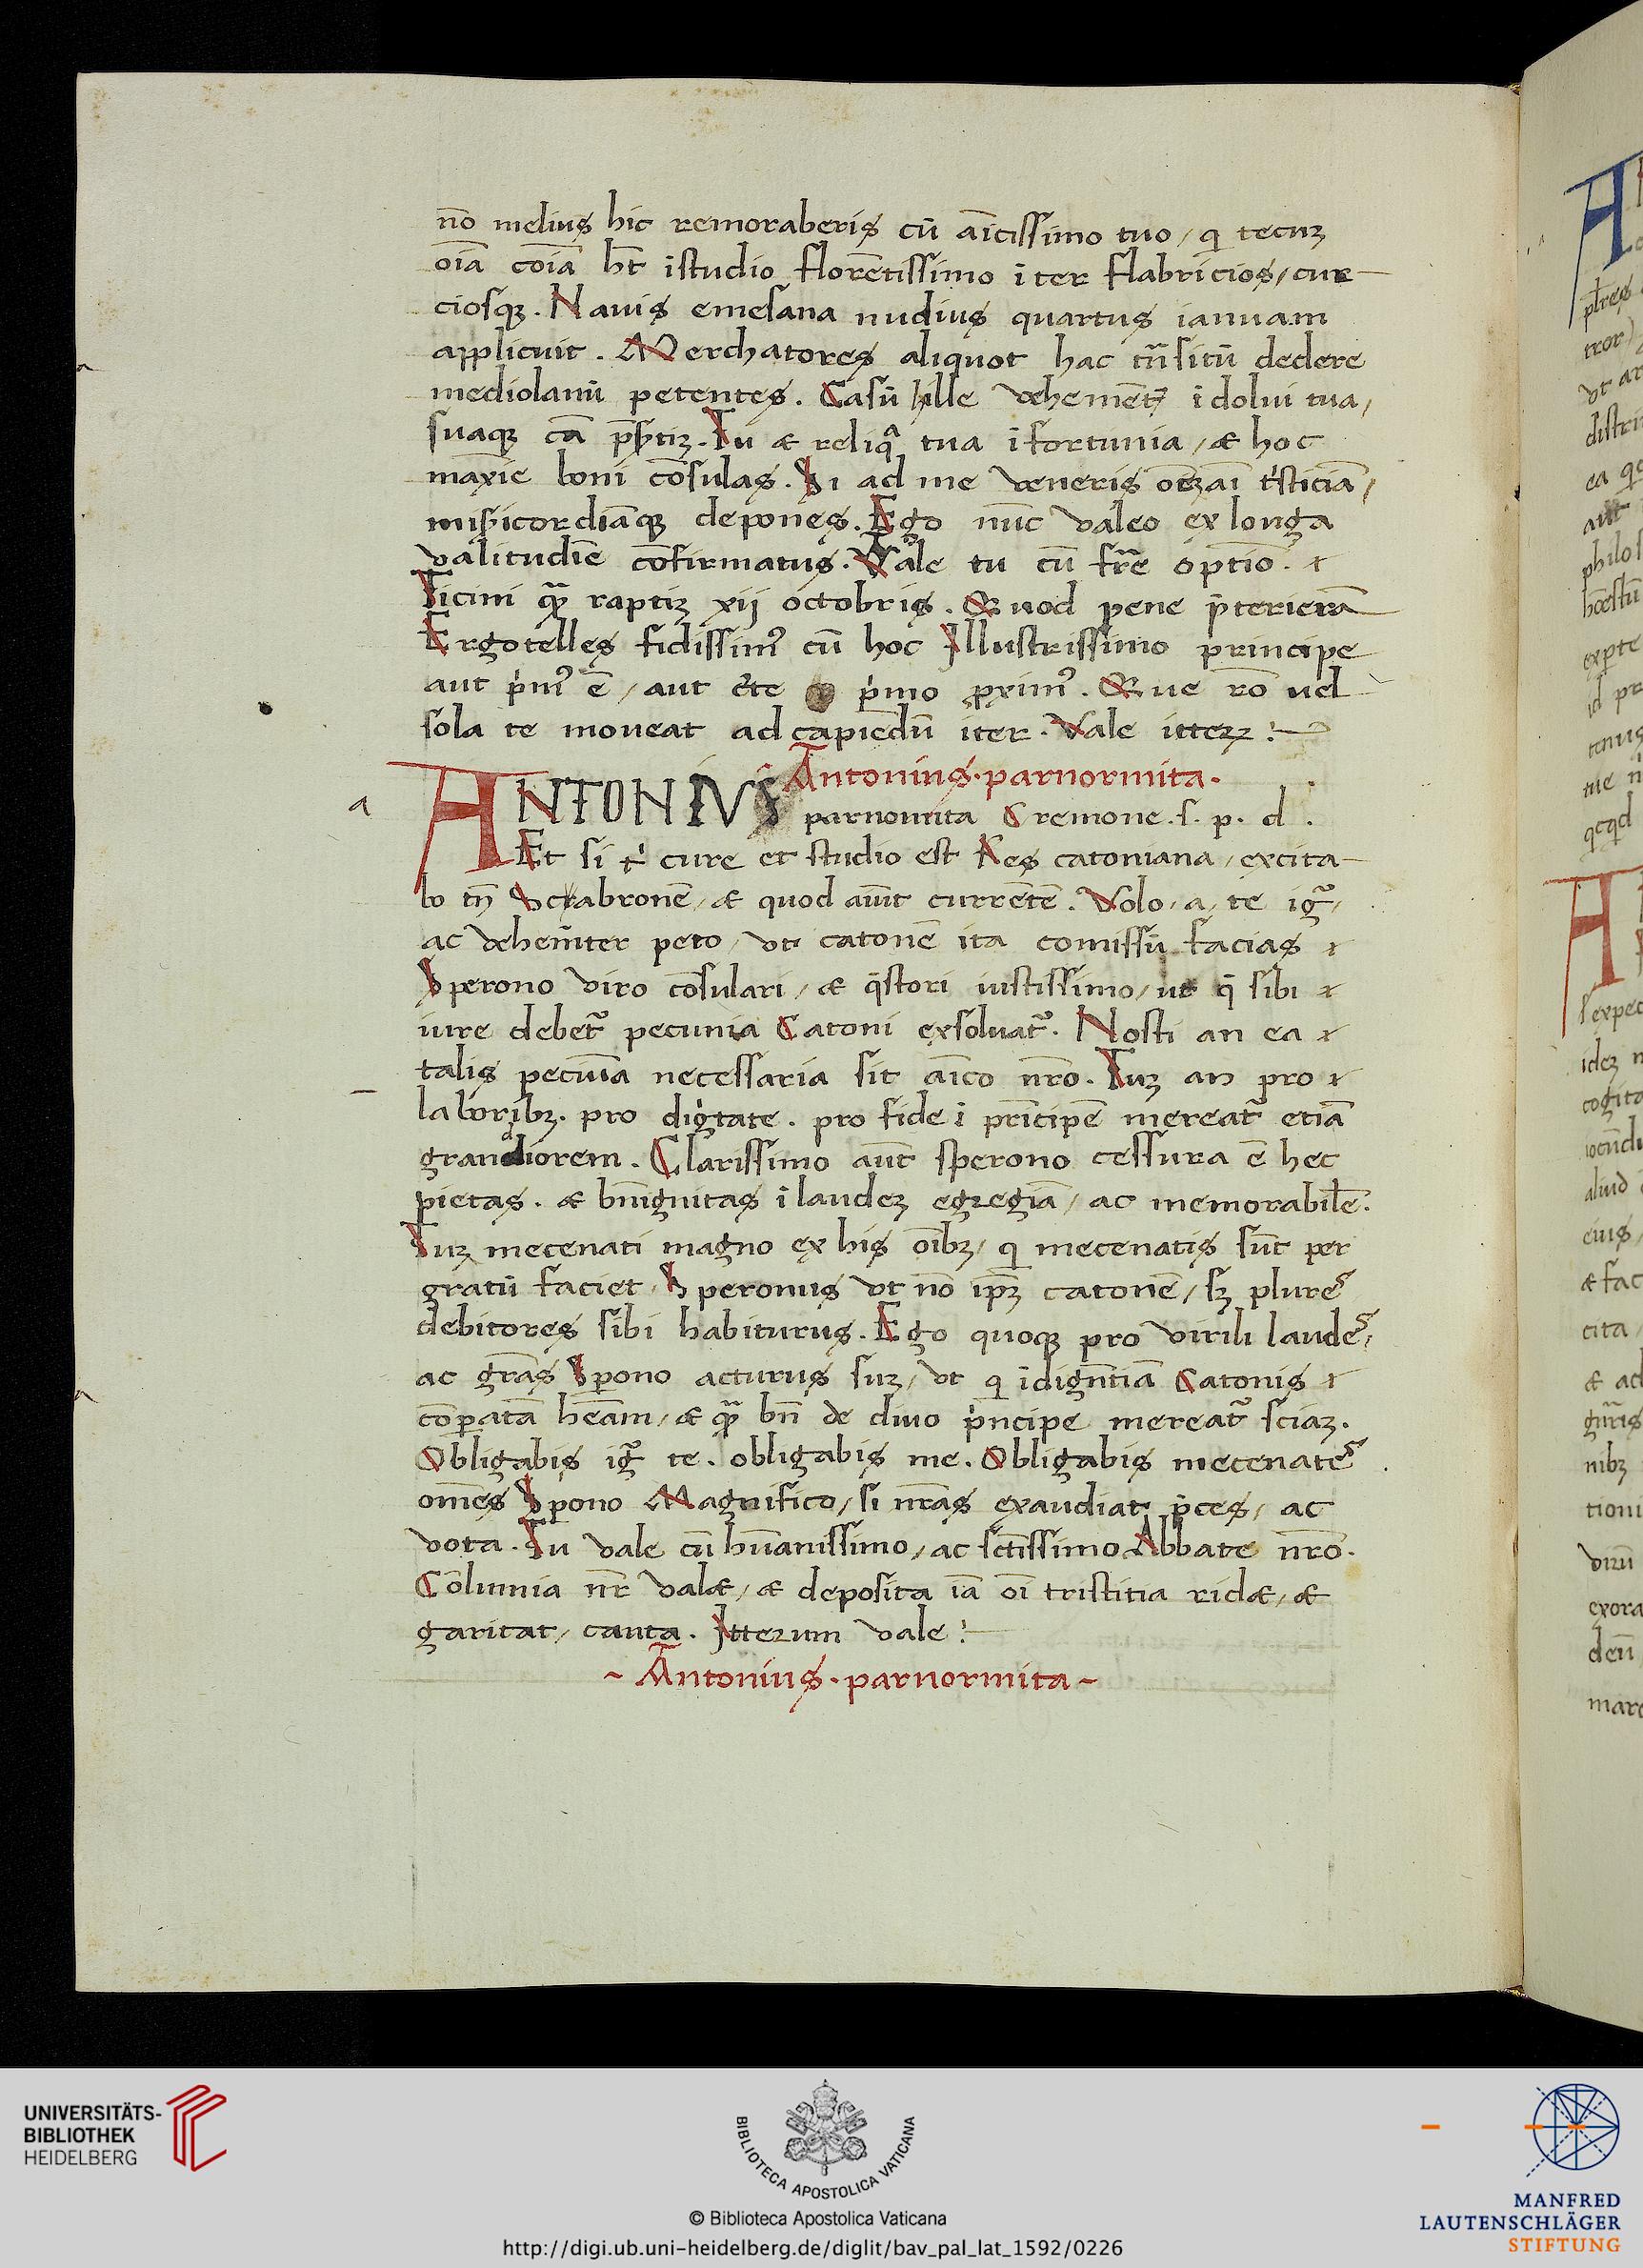 nō melius hic remoraberis cū aīcissimo tuo / q tecuz
oīa cōia hꝫt īstudio florētissimo īter flabricios / cur-
ciosqꝫ. Nauis emesana nudius quartus ianuam
applicuit. Merchatores aliquot hac trāsitū dedere
mediolanū petentes. Casū ille vehemēt īdolui tua /
suaqꝫ cā. Tu & reliqā tua īfortunia / & hoc
maxīe boni cōsulas. Si ad me veneris tristiciā /
misericordiāqꝫ depones. Ego nūc valeo ex longa
valitudīe cōfirmatus. Vale tu cū frē optīo.
Ticini raptiz xij octobris. Quod pene p̄terierā
Ergotelles fidissim⁹ cū hoc Illustrissimo principe
aut prim⁹ ē / aut certe primo proxim⁹. Que rō uel
sola te moueat ad capiēdū iter. Vale itterꝝ :-
Antonius. parnormita.
a
ANTONIVS
parnormita Cremone. s. p. d.
Et si t' cure et studio est Res catoniana / excita-
bo tn̄ Scrabronē / & quod aiūt currētē. Volo / a / te igr̄ /
ac vehemn̄ter peto / vt catonē ita comissū facias
Sperono viro cōsulari / & q̄stori iustissimo / ut q̄ sibi
iure debetr̄ pecunia Catoni exsoluatr̄. Nosti an ea
talis pecūia necessaria sit aīco nr̄o. Tuz an pro
laboribꝫ. pro dig̍tate. pro fide ī prīcipē mereatr̄ etiā
grandiorem. Clarissimo aūt sperono cessura ē hec
pietas. & bn̄ignitas ī laudez egregiā / ac memorabilē.
Tuz mecenati magno ex his oībꝫ / q mecenatis sūt per
gratū faciet. Speronus vt nō ipꝫ catonē / sꝫ plures
debitores sibi habiturus. Ego quoqꝫ pro virili laudes /
ac grās Sꝑono acturus suz / vt q īdigntiā Catonis
cōꝑatā hēam / & bn̄ de diuo principe mereatr̄ sciaz.
Obligabis igr̄ te. obligabis me. Obligabis mecenates
omēs Sꝑono Magnifico / si nr̄as exaudiat p̄ces / ac
vota. Tu vale cū hūanissimo / ac sctīssimo Abbate nr̄o.
Cōlumia nr̄ val& / & deposita iā oī tristitia rid& / &
garitat / cauta. Itterum vale :-
~ Antonius. parnormita ~
UNIVERSITÄTS-
BIBLIOTHEK
HEIDELBERG
BIBLIOTECA APOSTOLICA VATICANA
© Biblioteca Apostolica Vaticana
http://digi.ub.uni-heidelberg.de/diglit/bav_pal_lat_1592/0226
MANFRED
LAUTENSCHLÄGER
STIFTUNG